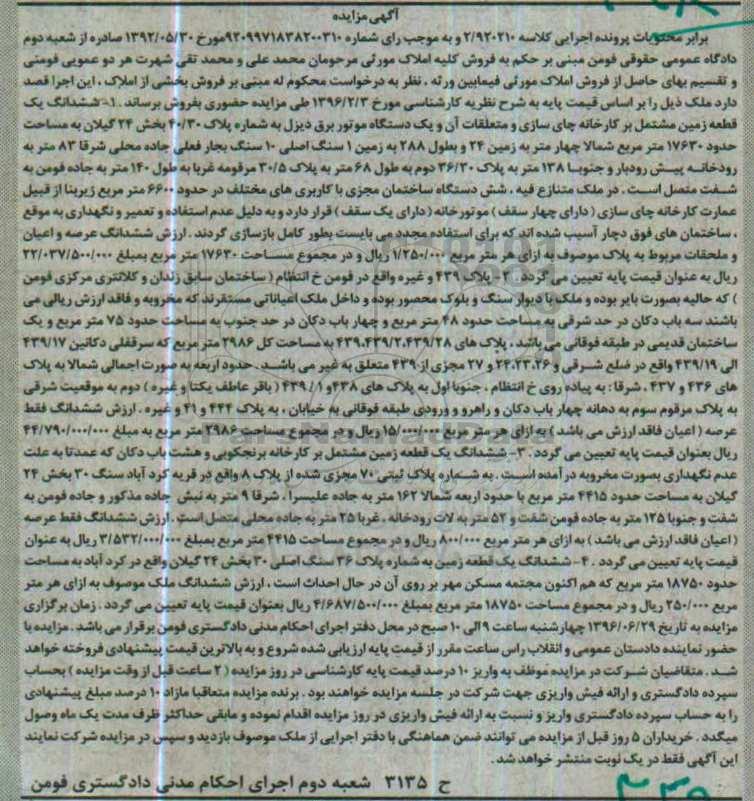 آگهی مزایده
برابر محتویات پرونده اجرایی کلاسه ۲/۹۲۰۲۱۰ و به موجب رای شماره ۹۲۰۹۹۷۱۸۳۸۲۰۰۳۱۰ مورخ ۱۳۹۲/۰۵/۳۰ صادره از شعبه دوم
دادگاه عمومی حقوقی فومن مبنی بر حکم به فروش کلیه املاک مورثی مرحومان محمد علی و محمد تقی شهرت هر دو عمویی فومنی
و تقسیم بهای حاصل از فروش املاک مورثی فیمابین ورثه . نظر به درخواست محکوم له مبنی بر فروش بخشی از املاک ، این اجرا قصد
دارد ملک ذیل را بر اساس قیمت پایه به شرح نظریه کارشناسی مورخ ۱۳۹۶/۲/۳ طی مزایده حضوری بفروش برساند . ۱- ششدانگ یک
قطعه زمین مشتمل بر کارخانه چای سازی و متعلقات آن و یک دستگاه موتور برق دیزل به شماره پلاک ۴۰/۳۰ بخش ۲۴ گیلان به مساحت
حدود ۱۷۶۳۰ متر مربع شمالا چهار متر به زمین ۲۴ و بطول ۲۸۸ به زمین ۱ سنگ اصلی ۱۰ سنگ بجار فعلی جاده محلی شرقا ۸۳ متر به
رودخانه پیش رودبار و جنوبا ۱۳۸ متر به پلاک ۳۶/۳۰ دوم به طول ۶۸ متر به پلاک ۳۰/۵ مرقومه غربا به طول ۱۴۰ متر به جاده فومن به
شفت متصل است . در ملک متنازع فیه ، شش دستگاه ساختمان مجزی با کاربری های مختلف در حدود ۶۶۰۰ متر مربع زیربنا از قبیل
عمارت کارخانه چای سازی ( دارای چهار سقف ) موتورخانه ( دارای یک سقف ) قرار دارد و به دلیل عدم استفاده و تعمیر و نگهداری به موقع
، ساختمان های فوق دچار آسیب شده اند که برای استفاده مجدد می بایست بطور کامل بازسازی گردند . ارزش ششدانگ عرصه و اعیان
و ملحقات مربوط به پلاک موصوف به ازای هر متر مربع ۱/۲۵۰/۰۰۰ ریال و در مجموع مساحت ۱۷۶۳۰ متر مربع بمبلغ ۲۲/۰۳۷/۵۰۰/۰۰۰
ریال به عنوان قیمت پایه تعیین می گردد . ۲- پلاک ۴۳۹ و غیره واقع در فومن خ انتظام ( ساختمان سابق زندان و کلانتری مرکزی فومن
) که حالیه بصورت بایر بوده و ملک با دیوار سنگ و بلوک محصور بوده و داخل ملک اعیاناتی مستقرند که مخروبه و فاقد ارزش ریالی می
باشند سه باب دکان در حد شرقی به مساحت حدود ۴۸ متر مربع و چهار باب دکان در حد جنوب به مساحت حدود ۷۵ متر مربع و یک
ساختمان قدیمی در طبقه فوقانی می باشد ، پلاک های ۴۳۹،۴۳۹/۲،۴۳۹/۲۸ به مساحت کل ۲۹۸۶ متر مربع که سرقفلی دکانین ۴۳۹/۱۷
الی ۴۳۹/۱۹ واقع در ضلع شرقی و ۲۴،۲۳،۲۶ و ۲۷ مجزی از ۴۳۹ متعلق به غیر می باشد . حدود اربعه به صورت اجمالی شمالا به پلاک
های ۴۳۶ و ۴۳۷ ، شرقا : به پیاده روی خ انتظام ، جنوبا اول به پلاک های ۴۳۸ و ۱ / ۴۳۹ ( باقر عاطف یکتا و غیره ) دوم به موقعیت شرقی
به پلاک مرقوم سوم به دهانه چهار باب دکان و راهرو و ورودی طبقه فوقانی به خیابان ، به پلاک ۴۴۴ و ۴۱ و غیره . ارزش ششدانگ فقط
عرصه ( اعیان فاقد ارزش می باشد ) به ازای هر متر مربع ۱۵/۰۰۰/۰۰۰ ریال و در مجموع مساحت ۲۹۸۶ متر مربع به مبلغ ۴۴/۷۹۰/۰۰۰/۰۰۰
ریال بعنوان قیمت پایه تعیین می گردد . ۳- ششدانگ یک قطعه زمین مشتمل بر کارخانه برنجکوبی و هشت باب دکان که عمدتا به علت
عدم نگهداری بصورت مخروبه در آمده است . به شماره پلاک ثبتی ۷۰ مجزی شده از پلاک ۸ واقع در قریه کرد آباد سنگ ۳۰ بخش ۲۴
گیلان به مساحت حدود ۴۴۱۵ متر مربع با حدود اربعه شمالا ۱۶۲ متر به جاده علیسرا ، شرقا ۹ متر به نبش جاده مذکور و جاده فومن به
شفت و جنوبا ۱۲۵ متر به جاده فومن شفت و ۵۲ متر به لات رودخانه . غربا ۲۵ متر به جاده محلی متصل است . ارزش ششدانگ فقط عرصه
( اعیان فاقد ارزش می باشد ) به ازای هر متر مربع ۸۰۰/۰۰۰ ریال و در مجموع مساحت ۴۴۱۵ متر مربع بمبلغ ۳/۵۳۲/۰۰۰/۰۰۰ ریال به عنوان
قیمت پایه تعیین می گردد . ۴- ششدانگ یک قطعه زمین به شماره پلاک ۳۶ سنگ اصلی ۳۰ بخش ۲۴ گیلان واقع در کرد آباد به مساحت
حدود ۱۸۷۵۰ متر مربع که هم اکنون مجتمع مسکن مهر بر روی آن در حال احداث است ، ارزش ششدانگ ملک موصوف به ازای هر متر
مربع ۲۵۰/۰۰۰ ریال و در مجموع مساحت ۱۸۷۵۰ متر مربع بمبلغ ۴/۶۸۷/۵۰۰/۰۰۰ ریال بعنوان قیمت پایه تعیین می گردد . زمان برگزاری
مزایده به تاریخ ۱۳۹۶/۰۶/۲۹ چهارشنبه ساعت ۹ الی ۱۰ صبح در محل دفتر اجرای احکام مدنی دادگستری فومن برقرار می باشد . مزایده با
حضور نماینده دادستان عمومی و انقلاب راس ساعت مقرر از قیمت پایه ارزیابی شده شروع و به بالاترین قیمت پیشنهادی فروخته خواهد
شد . متقاضیان شرکت در مزایده موظف به واریز ۱۰ درصد قیمت پایه کارشناسی در روز مزایده ( ۲ ساعت قبل از وقت مزایده ) بحساب
سپرده دادگستری و ارائه فیش واریزی جهت شرکت در جلسه مزایده خواهند بود . برنده مزایده متعاقبا مازاد ۱۰ درصد مبلغ پیشنهادی
را به حساب سپرده دادگستری واریز و نسبت به ارائه فیش واریزی در روز مزایده اقدام نموده و مابقی حداکثر ظرف مدت یک ماه وصول
میگدد . خریداران ۵ روز قبل از مزایده می توانند ضمن هماهنگی با دفتر اجرایی از ملک موصوف بازدید و سپس در مزایده شرکت نمایند
این آگهی فقط در یک نوبت منتشر خواهد شد .
ح ۳۱۳۵ شعبه دوم اجرای احکام مدنی دادگستری فومن